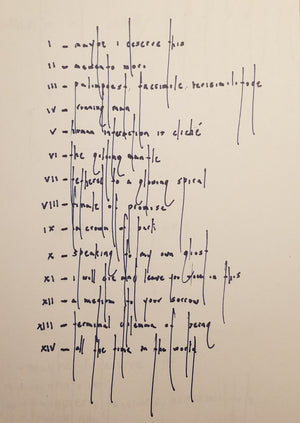 I - maybe I deserve this
II - memento mori
III - palimpsest, facsimile, verisimilitude
IV - running man
V - human interaction is cliché
VI - the going man-tle
VII - tethered to a glowing spiral
VIII - of promise
IX - a crown of bark
X - speaking to my own ghost
XI - I will die and leave you alone in this
XII - a medium to your sorrow
XIII - terminal dilemma of being
XIV - all the time in the world